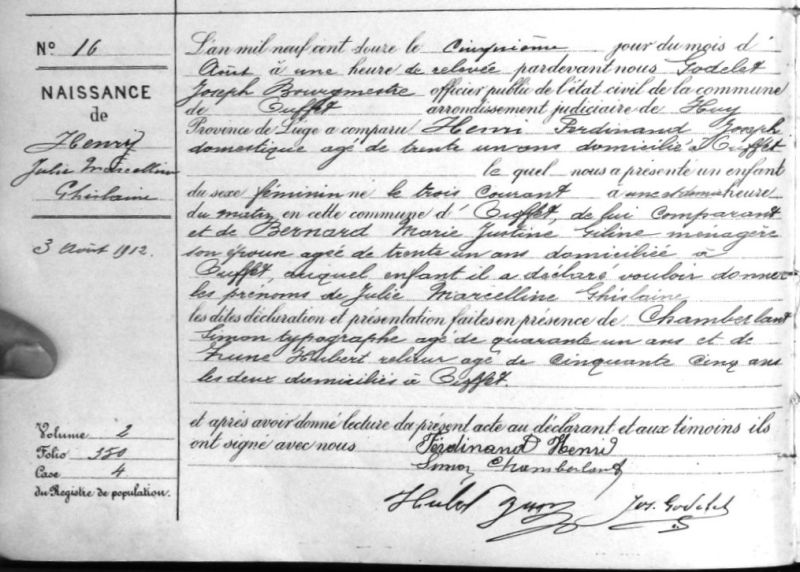 N° 16
NAISSANCE
de
Henry
Julie Marcelline
Ghislaine
3 Août 1912.
Volume 2
Folio 380
Case 4
du Registre de population.
L'an mil neuf cent douze le cinquième jour du mois d'
Août à une heure de relevée pardevant nous Godelet
Joseph Bourgmestre officier public de l'état civil de la commune
de Ouffet arrondissement judiciaire de Huy
Province de Liège a comparu Henri Ferdinand Joseph
domestique agé de trente un ans domicilié à Ouffet
le quel nous a présenté un enfant
du sexe féminin né le trois courant à une et demie heure
du matin en cette commune d'Ouffet, de lui comparant
et de Bernard Marie Justine Giline ménagère
son épouse agée de trente un ans domiciliée à
Ouffet, auquel enfant il a déclaré vouloir donner
les prénoms de Julie Marcelline Ghislaine
les dites déclaration et présentation faites en présence de Chamberlant
Simon typographe agé de quarante un ans et de
Hubert relieur agé de cinquante cinq ans
les deux domiciliés à Ouffet.
et après avoir donné lecture du présent acte au déclarant et aux témoins ils
ont signé avec nous Ferdinand Henri
Simon Chamberland
Jos. Godelet